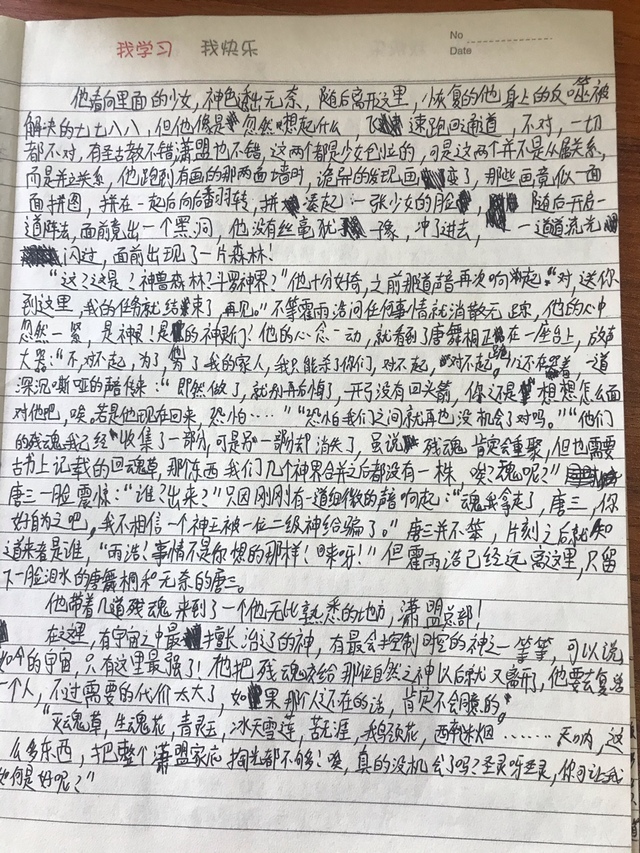 我学习 我快乐
No
Date
他看向里面的少女，神色透出无奈，随后离开这里，恢复的他身上的反噬被
解决的七七八八，但他像是忽然想起什么，速跑回通道，不对，一切
都不对，有圣古教不错潇盟也不错，这两个都是少女创立的，可是这两个并不是从属关系，
而是并立关系，他跑到有画的那两面墙时，诡异的发现画变了，那些画竟似一面
面拼图，拼在一起后向后翻转，拼凑起一张少女的脸，随后开启一
道阵法，面前竟出一个黑洞，他没有丝毫犹豫，冲了进去，一道道流光
闪过，面前出现了一片森林！
“这？这是？神兽森林？斗罗神界？”他十分好奇，之前那道声音再次响起：“对，送你
到这里，我的任务就结束了，再见。”不等霍雨浩问任何事情就消散无踪，他的心中
忽然一紧，是神眼！是的神眼们！他的心念一动，就看到了唐舞桐正在一座台上，放声
大哭：“不，对不起，为了，为了我的家人，我只能杀了你们，对不起，对不起。”还在哭着，一道
深沉嘶哑的声音传来：“即然做了，就别再后悔了，开弓没有回头箭，你还是想想怎么面
对他吧，唉。若是他现在回来，恐怕……”“恐怕我们之间就再也没机会了对吗。”“他们
的残魂我已经收集了一部分，可是另一部分却消失了，虽说残魂肯定会重聚，但也需要
古书上记载的回魂草，那东西我们几个神界合并之后都没有一株，唉？魂呢？”
唐三一脸震惊：“谁？出来？”只因刚刚有一道细微的声音响起：“魂我拿走了，唐三，你
好自为之吧，我不相信一个神王被一位二级神给骗了。”唐三并不笨，片刻之后就知
道来者是谁，“雨浩！事情不是你想的那样！回来呀！”但霍雨浩已经远离这里，只留
下一脸泪水的唐舞桐和无奈的唐三。
他带着几道残魂来到了一个他无比熟悉的地方，潇盟总部！
在这里，有宇宙之中最擅长治疗的神，有最会控制时空的神之一等等，可以说
如今的宇宙，只有这里最强了！他把残魂交给那位自然之神以后就又离开了，他要去复活
一个人，不过需要的代价太大了，如果那个人还在的话，肯定不会同意的。
“灭魂草，生魂花，青灵玉，冰天雪莲，苦无涯，鹤颈花，西醉烟………天呐，这
么多东西，把整个潇盟家底掏光都不够！唉，真的没机会了吗？圣灵呀圣灵，你可让我
如何是好呢？”